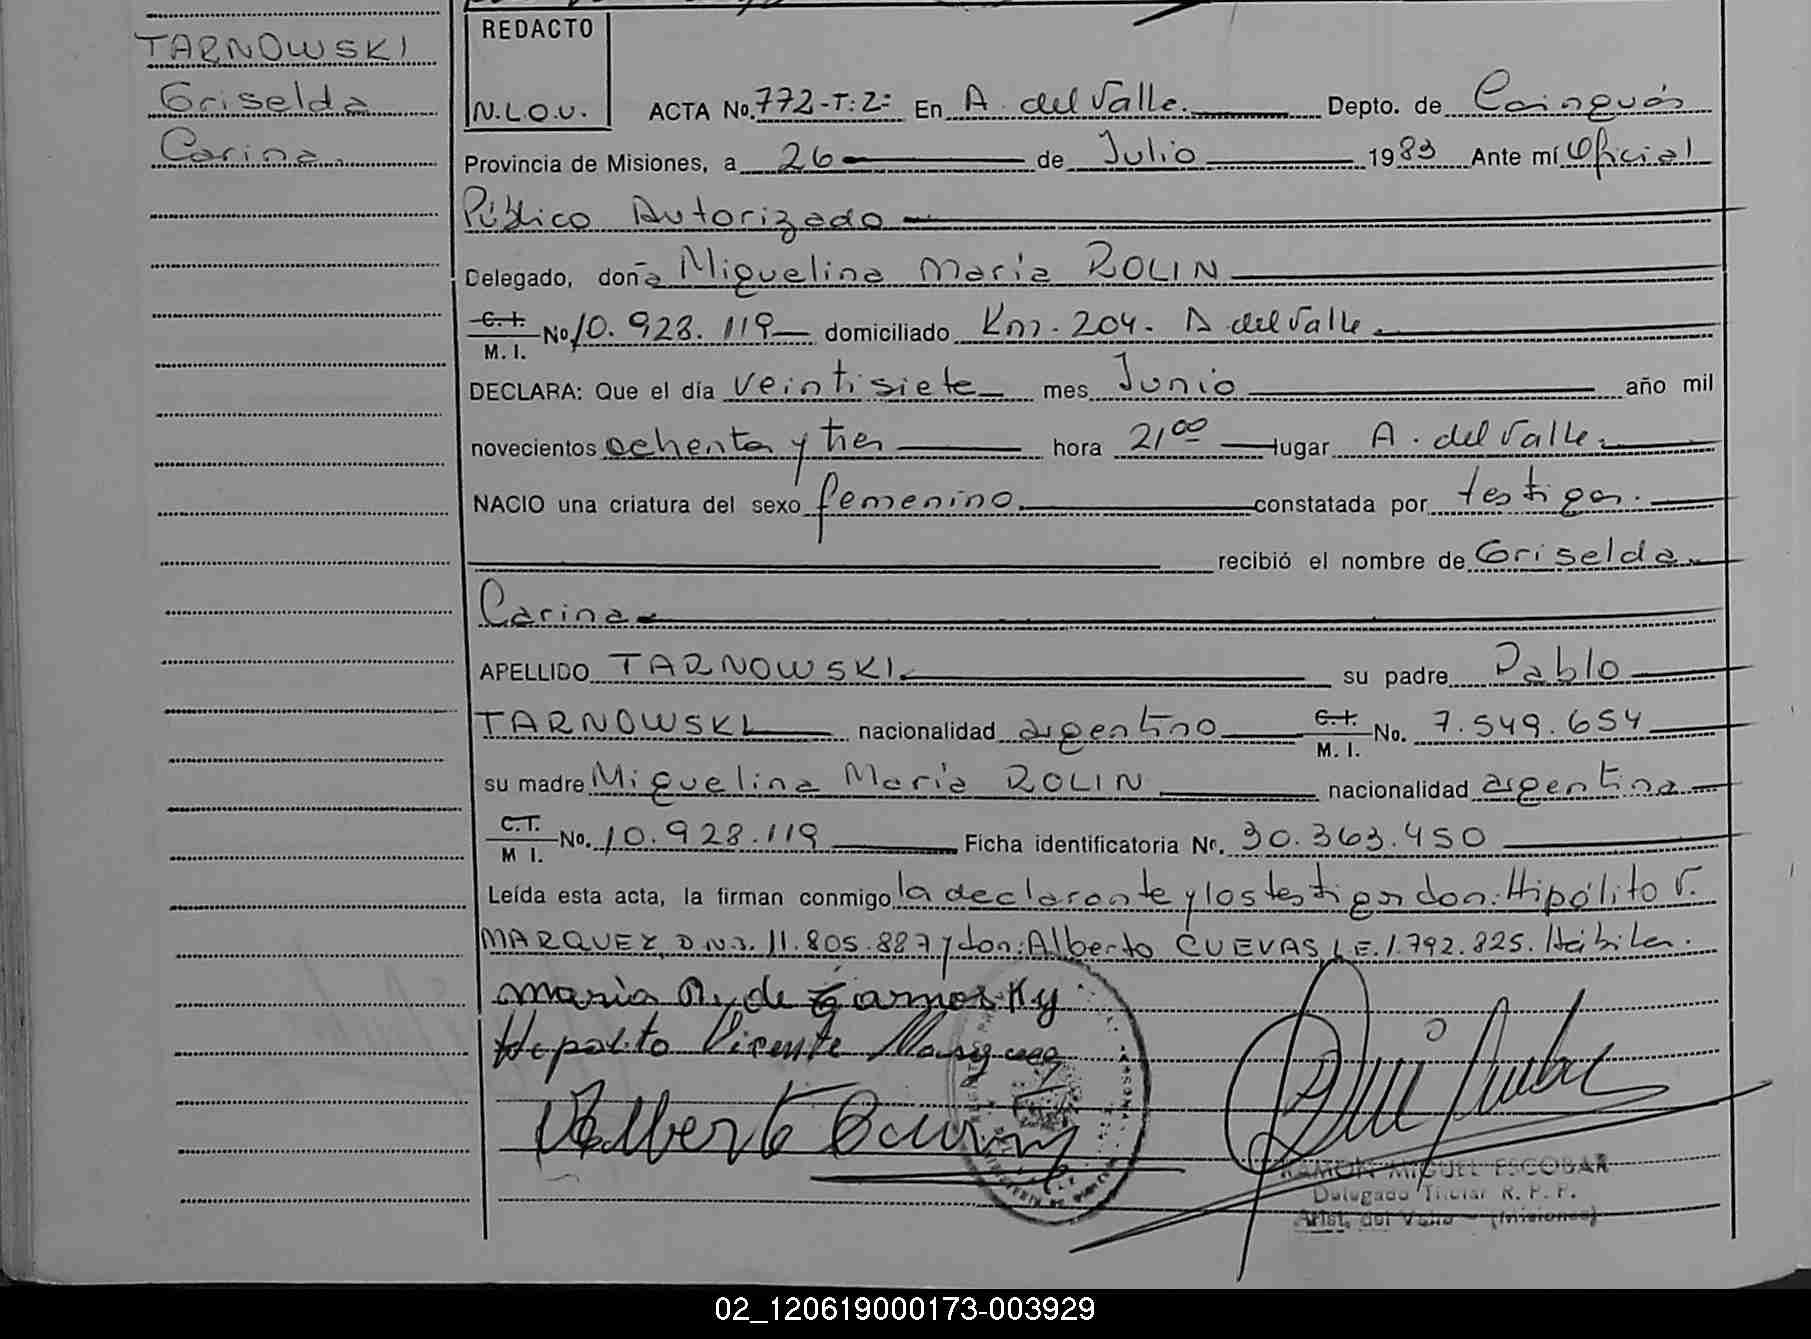 TARNOWSKI
Griselda
Carina.
REDACTO
N.L.O.U.
ACTA No. 772-T:2= En A. del Valle. Depto. de Cainguás
Provincia de Misiones, a 26 de Julio 1983 Ante mí Oficial
Público Autorizado
Delegado, doña Miguelina María ROLIN
C. I. M. I. No 10.928.119 domiciliado Km. 204. A del Valle.
DECLARA: Que el día veintisiete mes Junio año mil
novecientos ochenta y tres hora 21 00 lugar A. del Valle.
NACIO una criatura del sexo femenino. constatada por testigos.
recibió el nombre de Griselda
Carina
APELLIDO TARNOWSKI. su padre Pablo
TARNOWSKI nacionalidad argentino C. I. M. I. No. 7.549.654
su madre Miguelina María ROLIN nacionalidad argentina
C.T. M I. No. 10.928.119 Ficha identificatoria Nr. 30.363.450
Leída esta acta, la firman conmigo la declarante y los testigos don: Hipólito V.
MARQUEZ, D.N.I. 11.805.887 y don: Alberto CUEVAS, L.E. 1.792.825. Hábiles.
Maria R. de Tarnosky
Hipolito Vicente Marquez
Alberto Cuevas
RAMON MIGUEL ESCOBAR
Delegado Titular R. P. P.
Arist. del Valle - (Misiones)
02_120619000173-003929